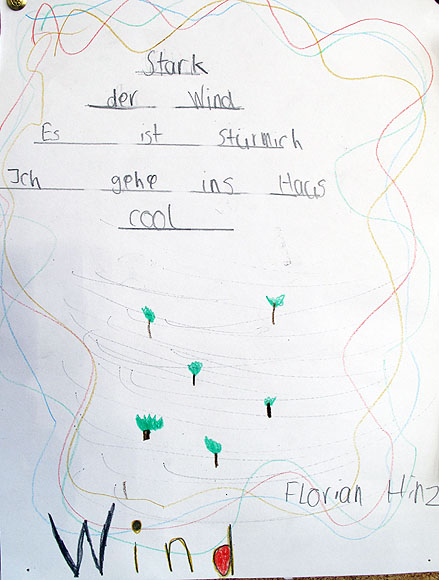 Stark
der Wind
Es ist stürmich
Ich gehe ins Haus
cool
Florian Hinz
Wind